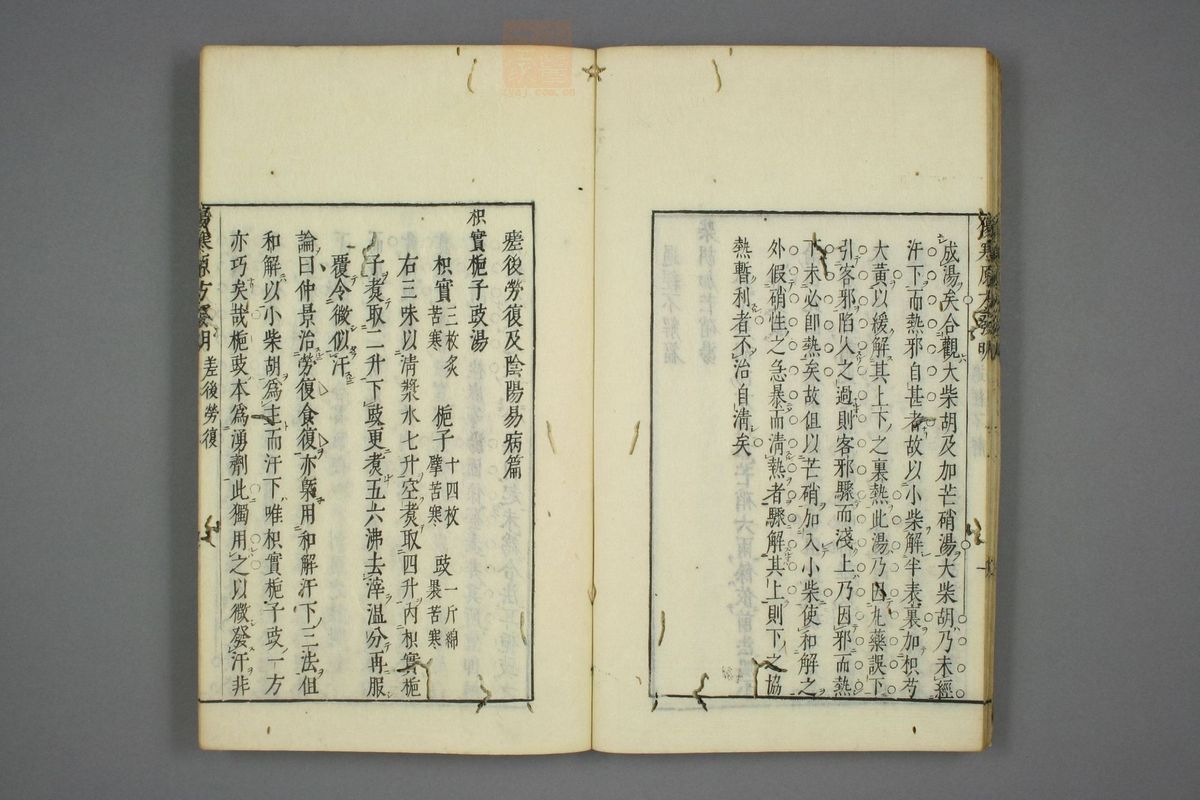 成湯矣合觀大柴胡及加芒硝湯大柴胡乃未經
汗下而熱邪自甚者故以小柴解半表裏加枳芍
大黃以緩解其上下之裏熱此湯乃因丸藥誤下
引客邪陷人之過則客邪驟而淺上乃因邪而熱
下未必即熱矣故但以芒硝加入小柴使和解之
外假硝性之急暴而清熱者驟解其上則下之協
熱暫利者不治自清矣
差後勞復及陰陽易病篇
枳實梔子豉湯
枳實三枚炙苦寒 梔子十四枚擘苦寒 豉一斤綿裹苦寒
右三味以清漿水七升空煑取四升內枳實梔
子煑取二升下豉更煑五六沸去滓溫分再服
覆令微似汗
論曰仲景治勞復食復亦槩用和解汗下三法但
和解以小柴胡爲主而汗下唯枳實梔子豉一方
亦巧矣哉梔豉本爲湧劑此獨用之以微發汗非
差後勞復